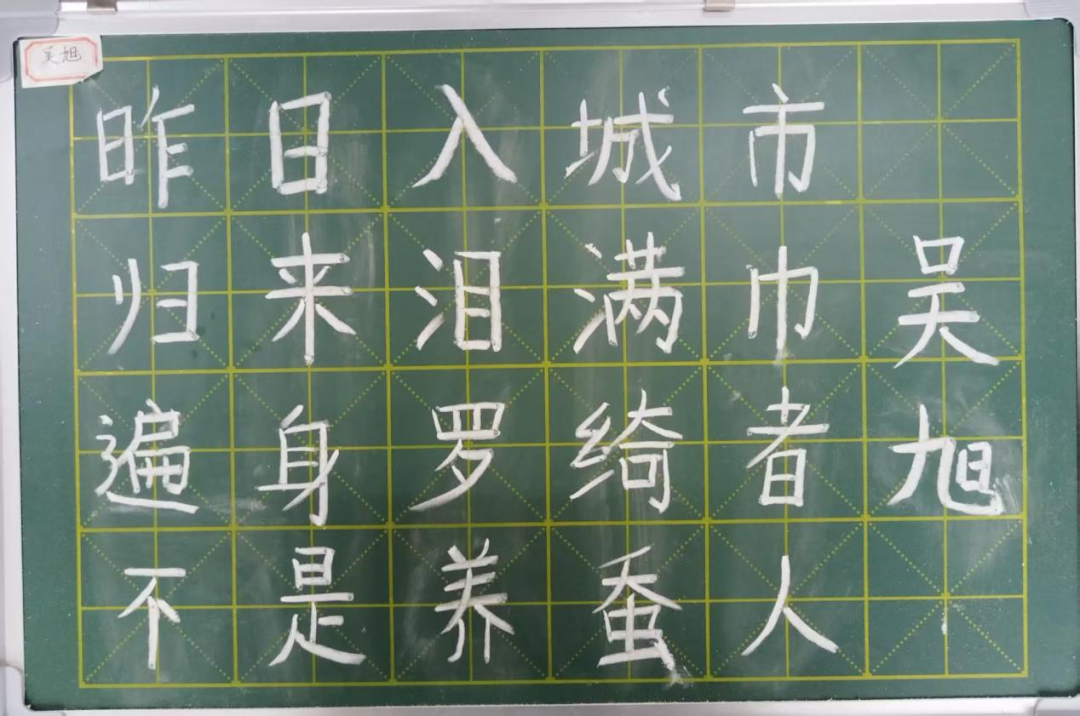 吴旭
昨日入城市
归来泪满巾
遍身罗绮者
不是养蚕人
吴旭